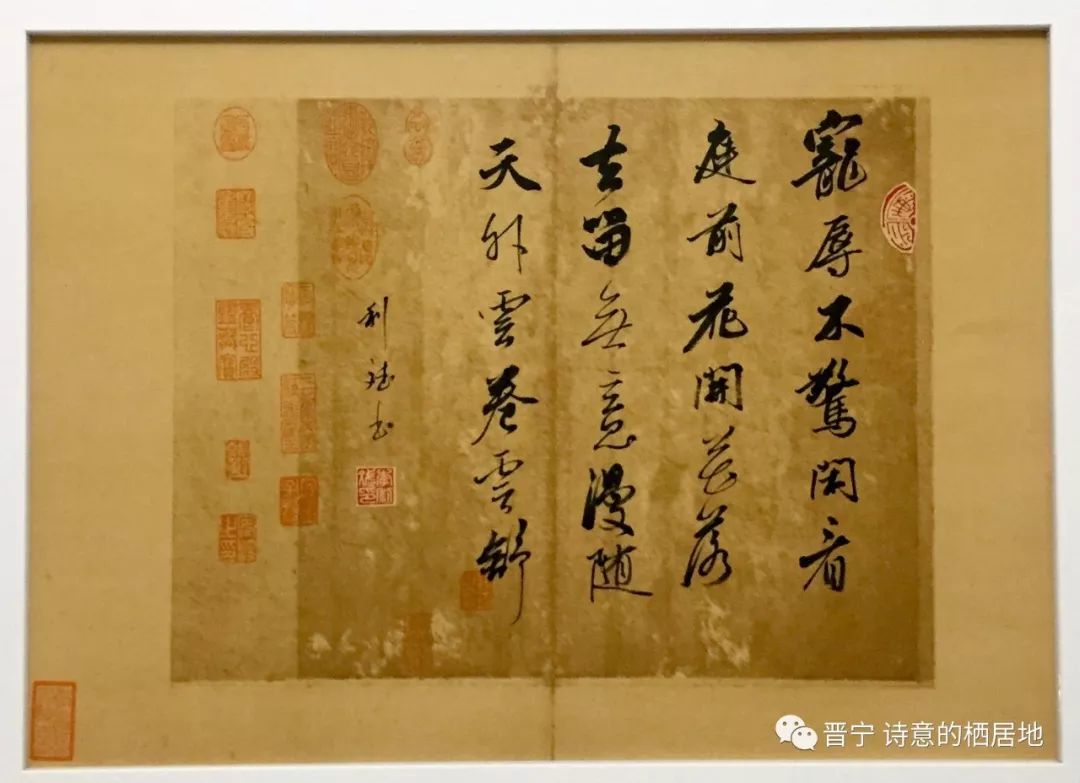 寵辱不驚閑看
庭前花開花落
去留無意漫隨
天外雲卷雲舒
利
書
晋宁 诗意的栖居地